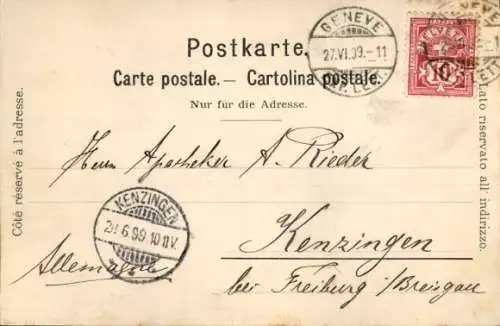 Postkarte.
Carte postale. — Cartolina postale.
Nur für die Adresse.
Côté réservé à l'adresse.
Lato riservato all' indirizzo.
GENEVE
27.VI.99.–11
EXP. LETT.
HELVETIA
10
Herrn Apotheker A. Rieder
Kenzingen
bei Freiburg i/Breisgau
Allemagne
KENZINGEN
6.99.10-11V.